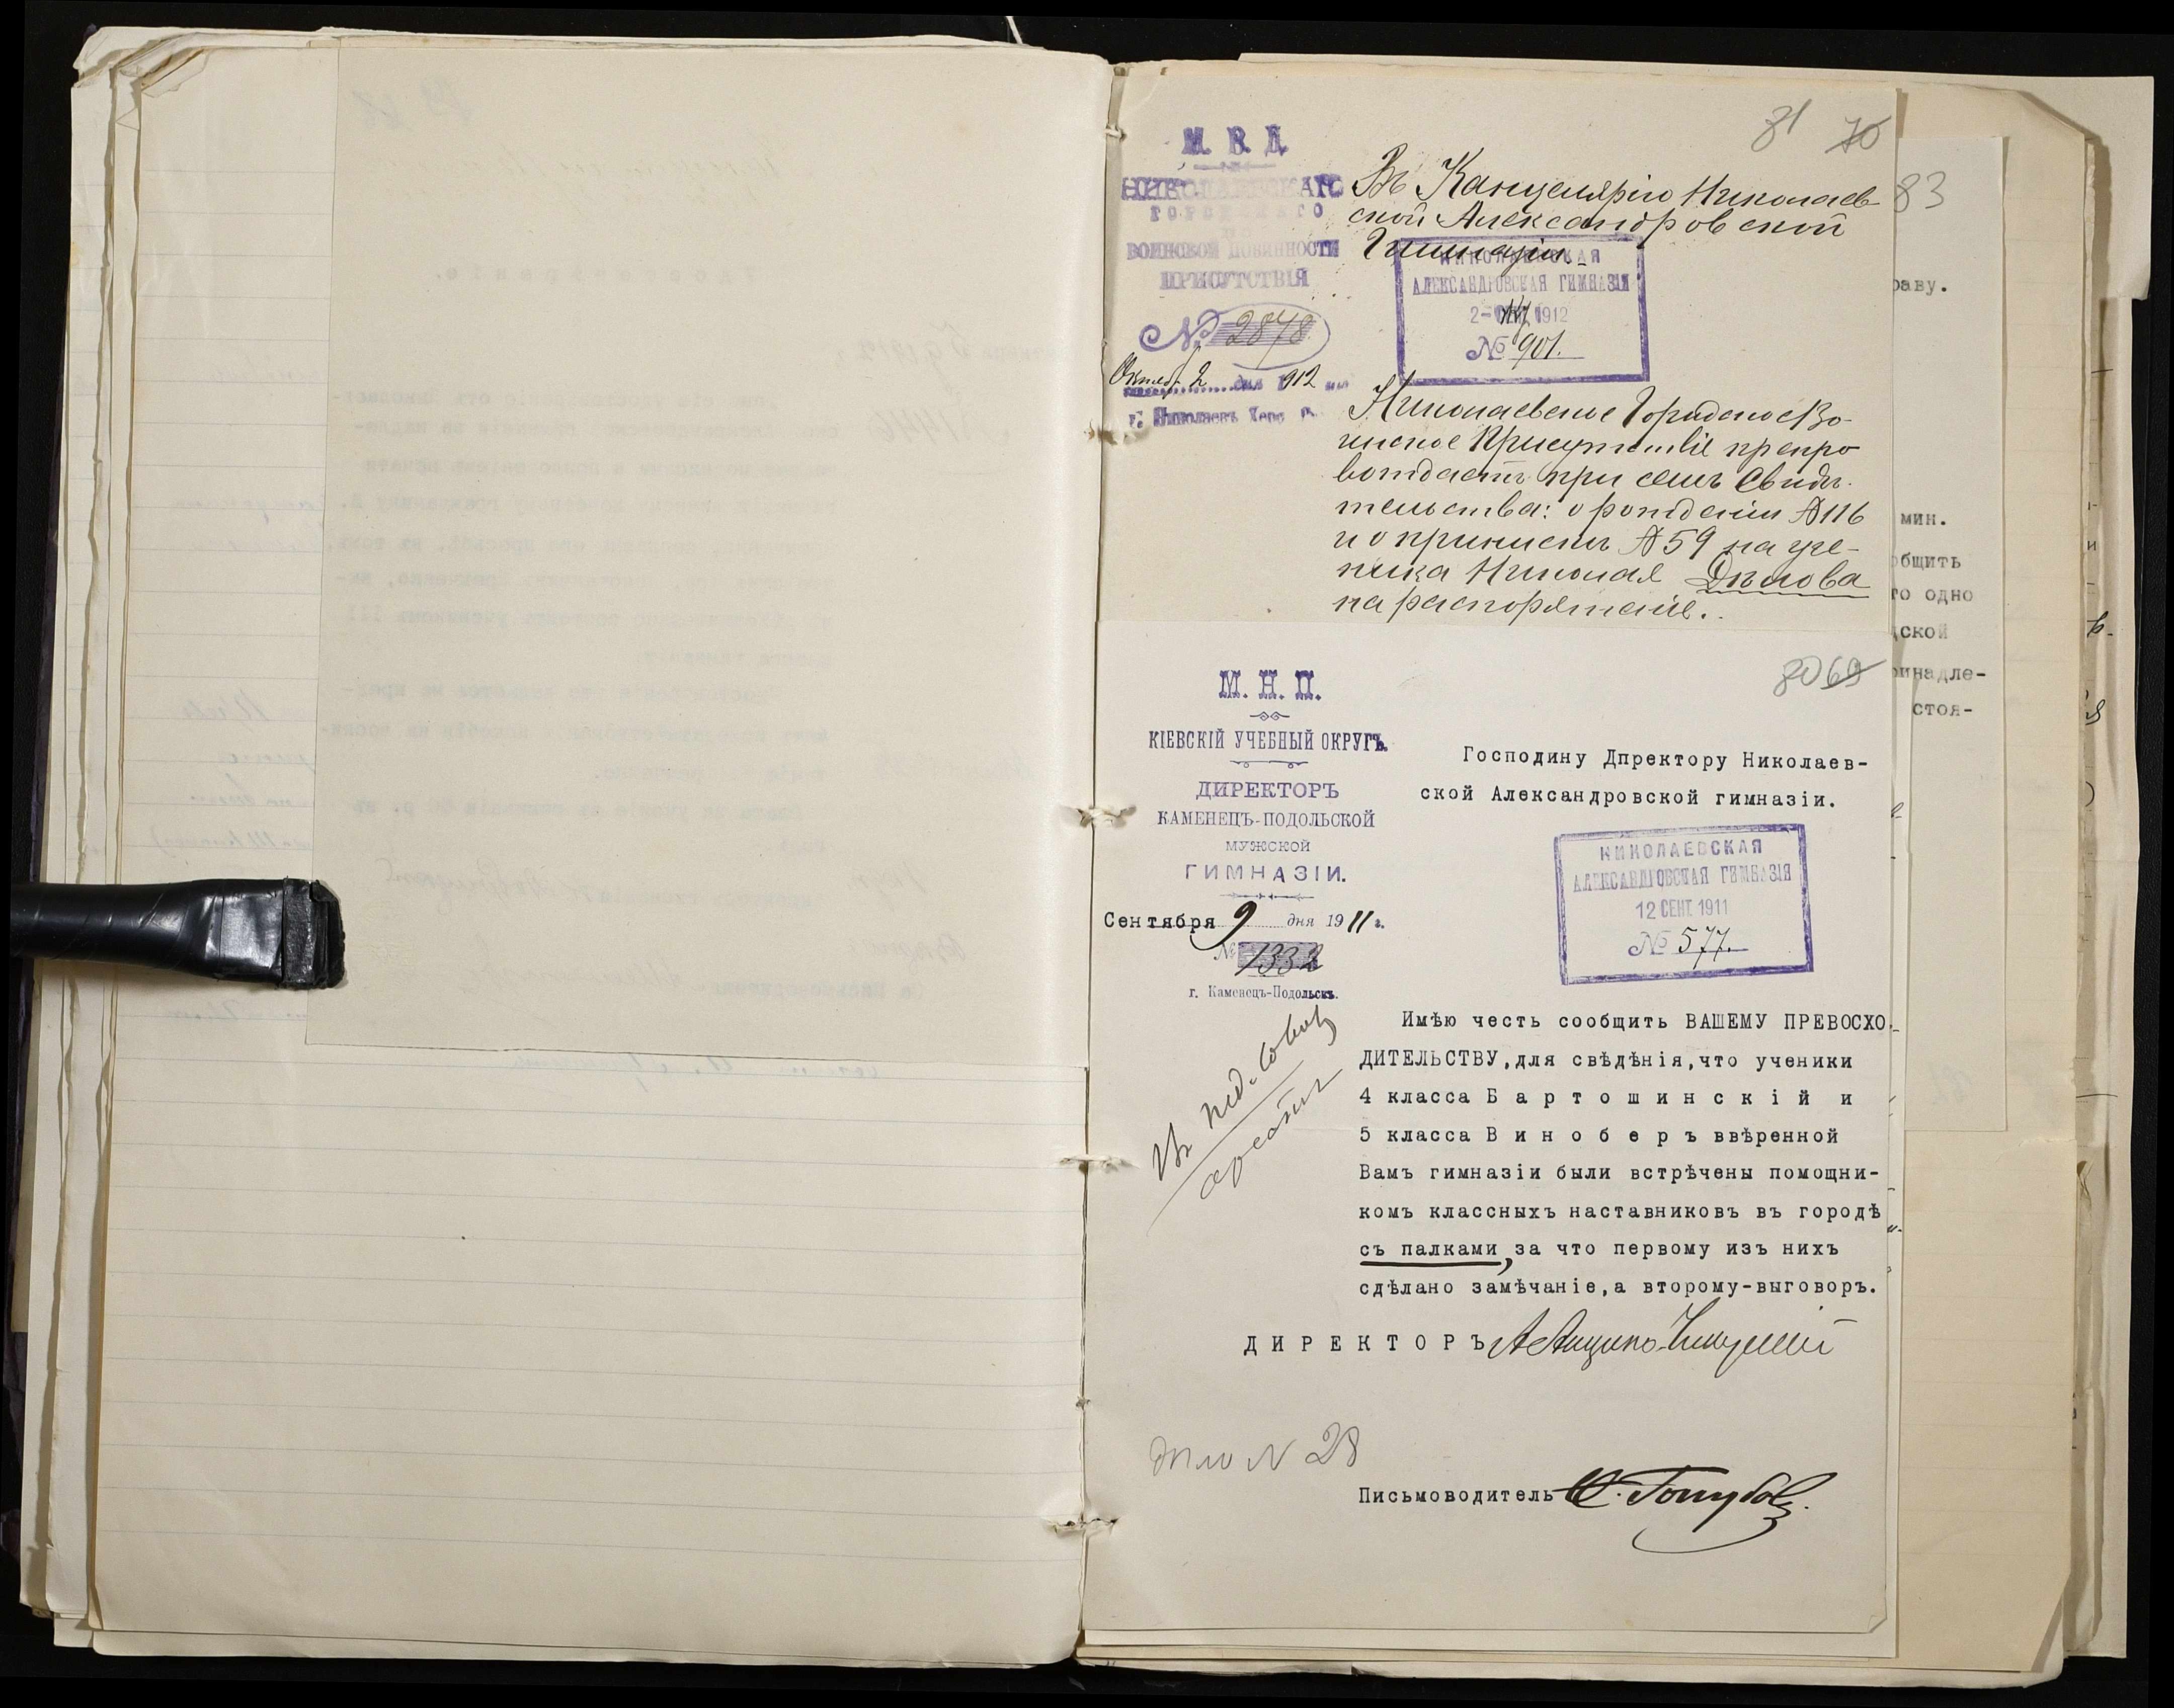 81 70
М. В. Д.
НИКОЛАЕВСКАГО
ГОРОДСКОГО
ВОИНСКОЙ ПОВИННОСТИ
ПРИСУТСТВІЯ
№ 2878
Октября 2 дня 1912
г. Николаевъ Херс. г.
Въ Канцелярію Николаев-
ской Александровской
Гимназіи.
НИКОЛАЕВСКАЯ
АЛЕКСАНДРОВСКАЯ ГИМНАЗІЯ
2- 1912
№ 901.
Николаевское Городское Во-
инское Присутствіе препро
вождаетъ при семъ Свидѣ-
тельства: о рожденіи №116
и о припискѣ №59 на уче-
ника Николая Дѣлова
на распоряженіе.
83
раву.
мин.
общить
го одно
ской
ринадле-
стоя-
80 69
М. Н. П.
КІЕВСКІЙ УЧЕБНЫЙ ОКРУГЪ.
ДИРЕКТОРЪ
КАМЕНЕЦЪ-ПОДОЛЬСКОЙ
МУЖСКОЙ
ГИМНАЗІИ.
Сентября 9 дня 1911 г.
№ 1332
г. Каменецъ-Подольскъ.
Господину Дпректору Николаев-
ской Александровской гимназіи.
НИКОЛАЕВСКАЯ
АЛЕКСАНДРОВСКАЯ ГИМНАЗІЯ
12 СЕНТ. 1911
№ 577.
Въ пед. совѣтъ
Имѣю честь сообщить ВАШЕМУ ПРЕВОСХО-
ДИТЕЛЬСТВУ,для свѣдѣнія,что ученики
4 класса Б а р т о ш и н с к і й и
5 класса В и н о б е р ъ ввѣренной
Вамъ гимназіи были встрѣчены помощни-
комъ классныхъ наставниковъ въ городѣ
съ палками,за что первому изъ нихъ
сдѣлано замѣчаніе,а второму-выговоръ.
Д И Р Е К Т О Р Ъ
дѣло N 28
Письмоводитель